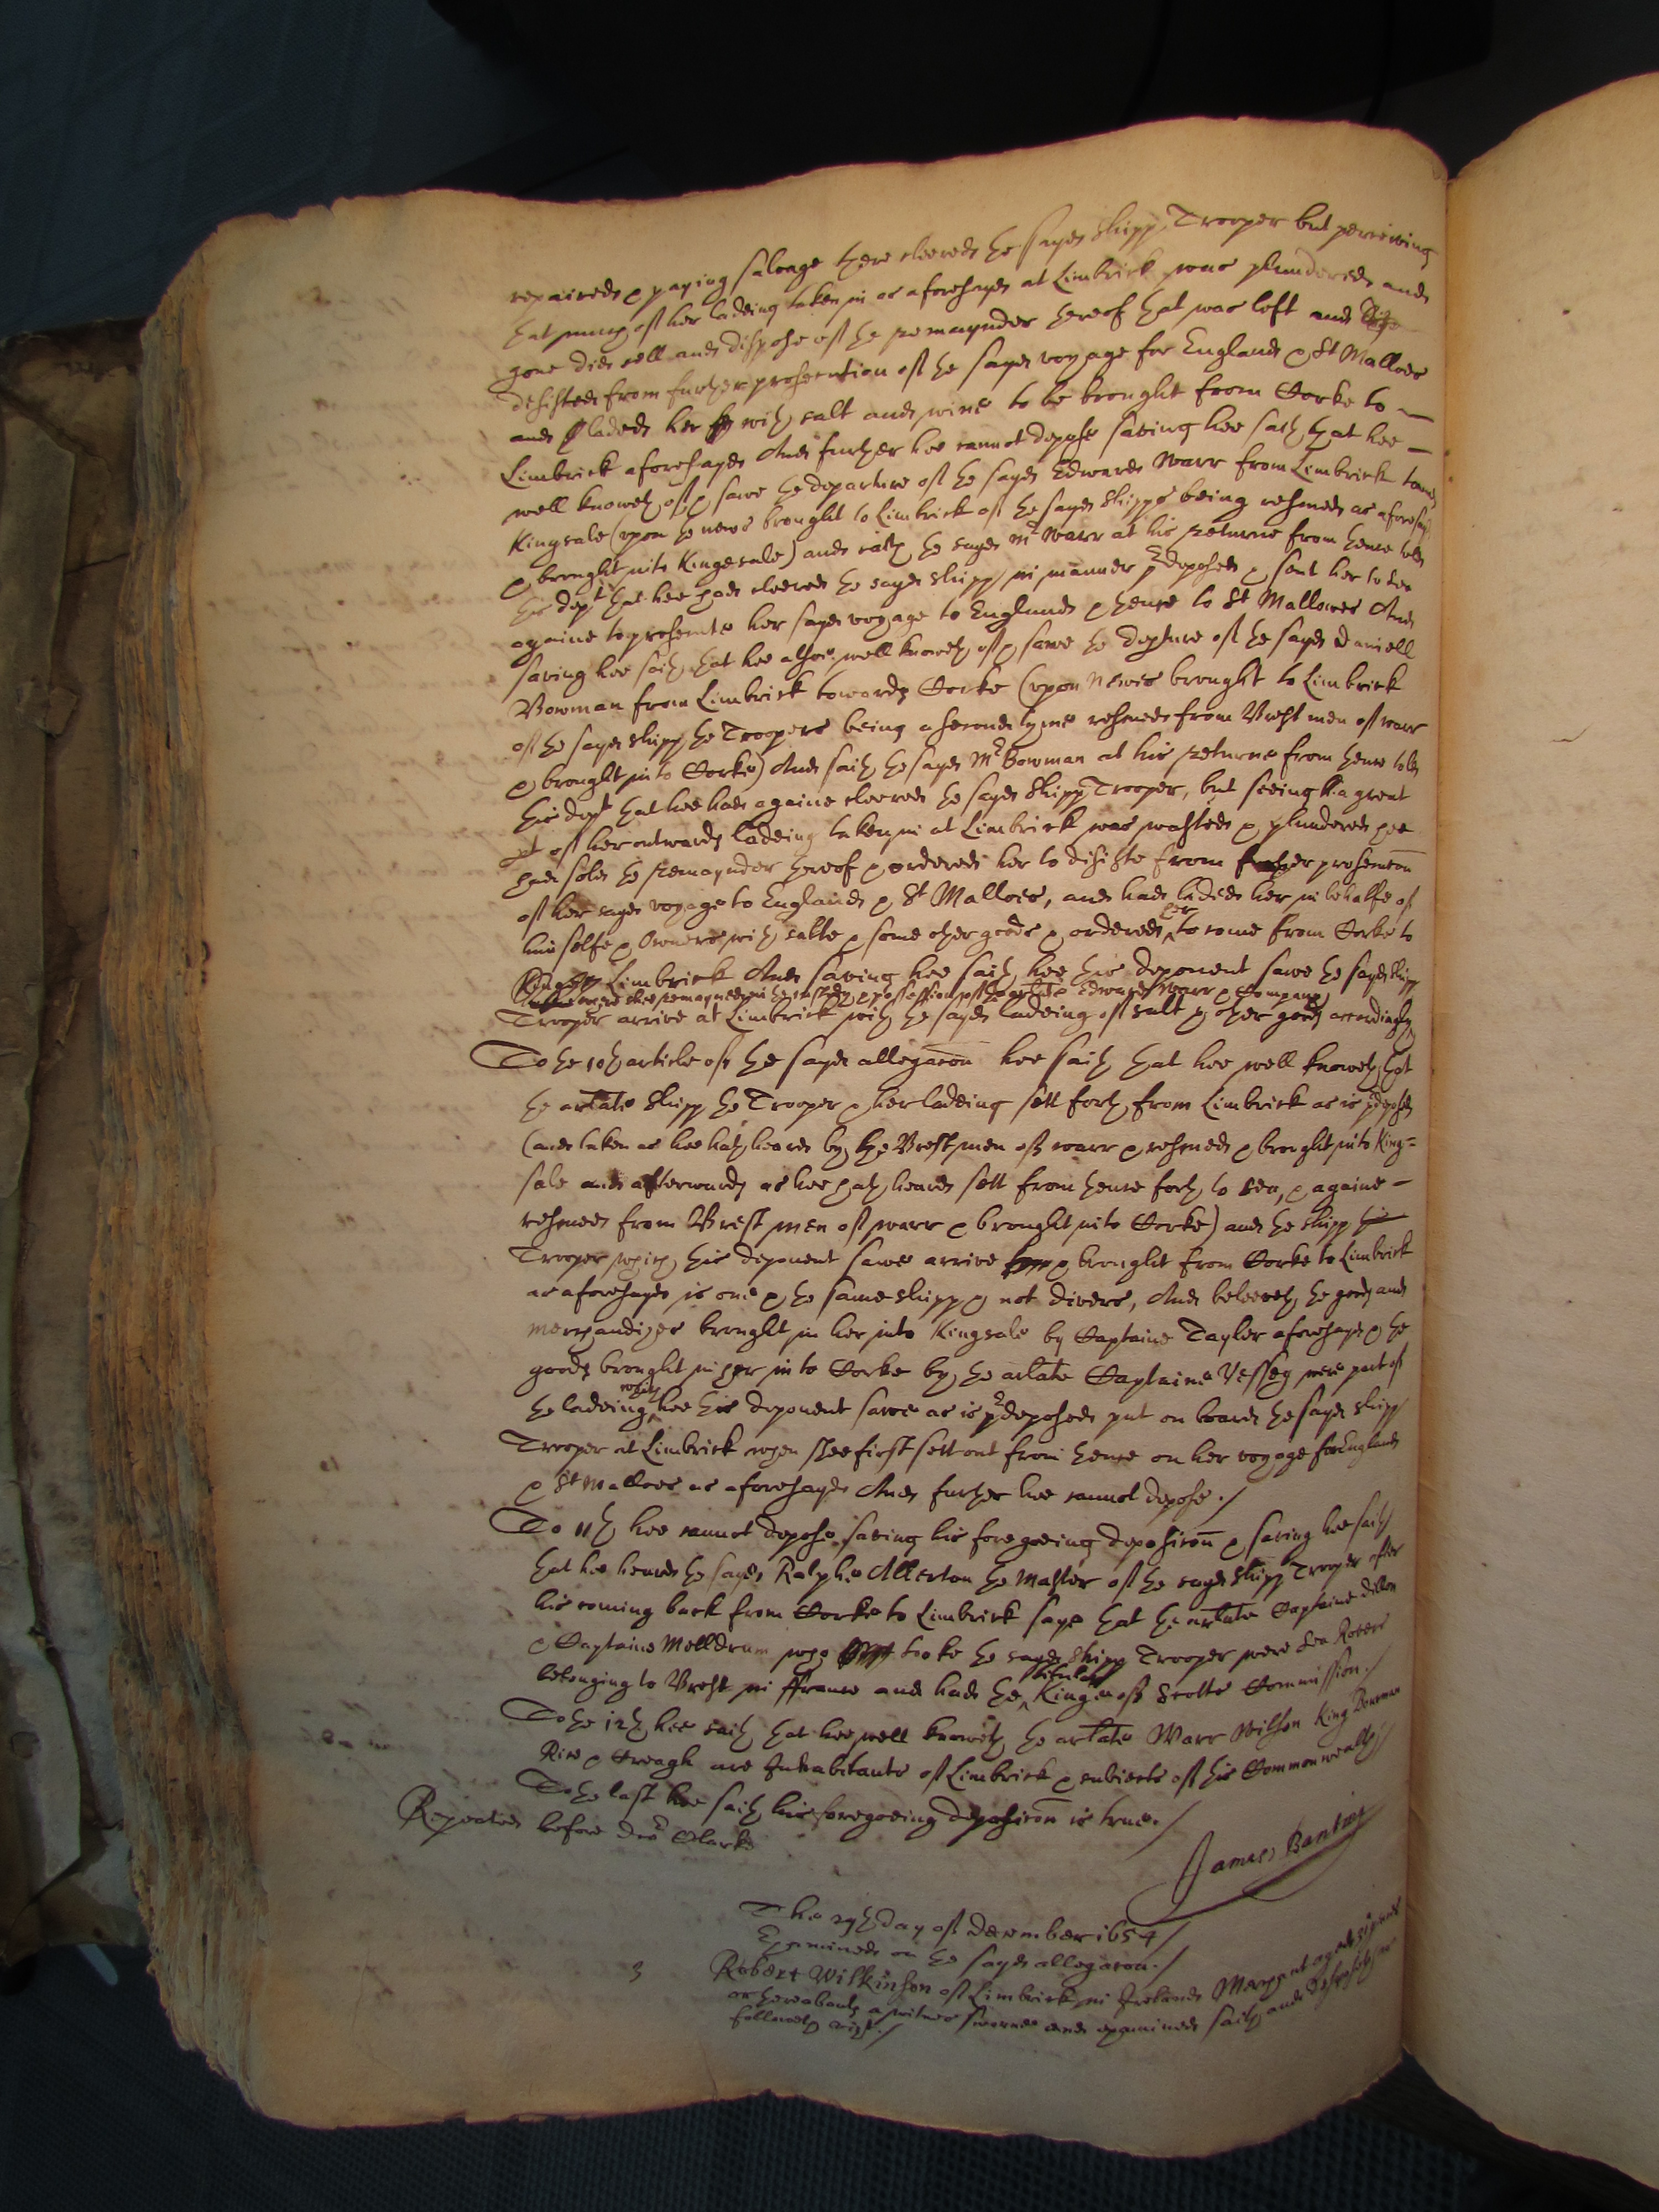 repaired & paying salvage there cleered the sayd shipp Trooper but perceiving
that much of her ladeing taken in as aforesayd at Limbrick was plundered and
gone did sell and dispose of the remaynder thereof that was left and
desisted from further prosecution of the sayd voyage for England & St Malloes
and laded her with salt and wine to be brought from Corke to
Limbrick aforesayd And further hee cannot depose saving hee saith that hee
well knoweth of & sawe the departure of the sayd Edward Warr from Limbrick towards
Kingsale (upon the newes brought to Limbrick of the sayd shipps being rescued as aforesayd
& brought into Kingesale) and saith the sayd Mr Warr at his returne from thence told
this dept that hee had cleered the sayd shipp in manner predeposed & sent her to sea
againe to prosecute her sayd voyage to England & thence to St Malloes And
saving hee saith that hee alsoe well knoweth of & sawe the depture of the sayd Daniell
Bowman from Limbrick towards Corke (upon newes brought to Limbrick
of the sayd shipp the Troopers being a second tyme rescued from Brest men of warr
& brought into Corke) And saith the sayd Mr Bowman at his returne from thence told
this dept that hee had againe cleered the sayd shipp Trooper, but seeing a great
pt of her outwards ladeing taken in at Limbrick was wasted & plundered hee
had sold the remaynder thereof & ordered her to desiste from further prosecucon
of her sayd voyage to England & St Malloes, and had ladeded her in behalfe of
himselfe & Owners with salte & some other goods & ordered her to come from Corke to
Limbrick And saving hee saith hee this deponent sawe the sayd shipp
Trooper arrive at Limbrick with the sayd ladeing of salt & other goods accordingly
shee remayned in the custody & possession of the arlate Edward Warr & Company
To the 10th article of the sayd allegacon hee saith that hee well knoweth that
the arlate shipp the Trooper & her ladeing sett forth from Limbrick as is predeposed
(and taken as hee hath heard by the Brest men of warr & rescued & brought into King=
sale and afterwards as hee hath heard sett from thence forth to sea, & againe
rescued from Brest men of warr & brought into Corke) and the shipp the
Trooper which this deponent sawe arrive & brought from Corke to Limbrick
as aforesayd is one & the same shipp & not divers, And beleeveth the goods and
merchandizes brought in her into Kingsale by Captaine Tayler aforesayd & the
goods brought in her into Corke by the arlate Captaine Vessey were part of
the ladeing which hee this deponent sawe as is predeposed put on board the sayd shipp
Trooper at Limbrick when shee first sett out from thence on her voyage for England
& St Malloes as aforesayd And further hee cannot depose ./
To 11th hee cannot depose saving his foregoeing deposicon & saving hee saith
that hee heard the sayd Ralph Allerton the Master of the sayd shipp Trooper after
his coming back from Corke to Limbrick saye that the arlate Captaine Dillon
& Captaine Melldrum who tooke the sayd shipp Trooper were Sea Rovers
belonging to Brest in ffrance and had the titular King of Scotts Commission./
To the 12th hee saith that hee well knoweth the arlate Warr Wilson King Bowman
Rice & Creagh are Inhabitants of Limbrick & subiects of this Commonwealth/
To the last hee saith his foregoeing deposicon is true./
Repeated before Dr Clarke
James Banting
The 29th day of December 1654/
Examined on the sayd allegacon./
3 Robert Wilkinson of Limbrick in Ireland Merchant aged
or thereabouts a witnes sworne and examined saith and deposeth as
followeth vizt./